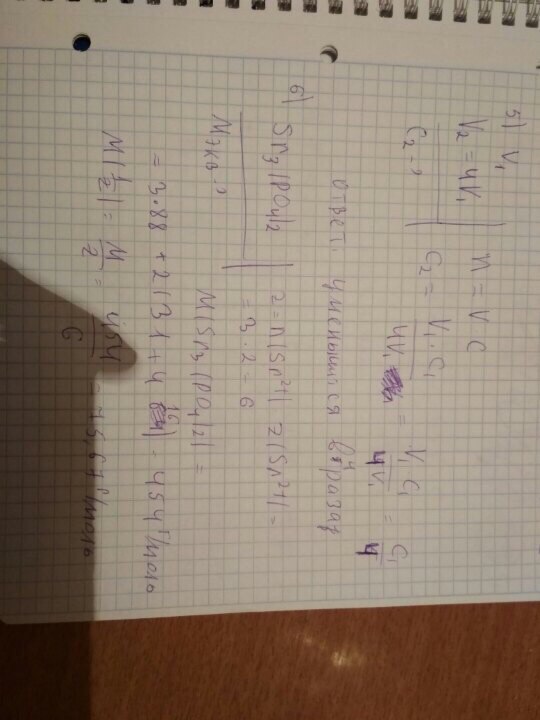 5) V₁
V₂ = 4V₁
C₂ - ?
n = V C
C₂ = V₁ · C₁ / 4V₁ = V₁ C₁ / 4V₁ = C₁ / 4
Ответ: уменьшится в 4 раза
6) Sr₃(PO₄)₂
Mэкв. - ?
z = n(Sr²⁺) · z(Sr²⁺) =
= 3 · 2 = 6
M(Sr₃(PO₄)₂) =
= 3 · 88 + 2(31 + 4 · 16) = 454 г/моль
M(1/z) = M/z = 454/6 = 75,67 г/моль